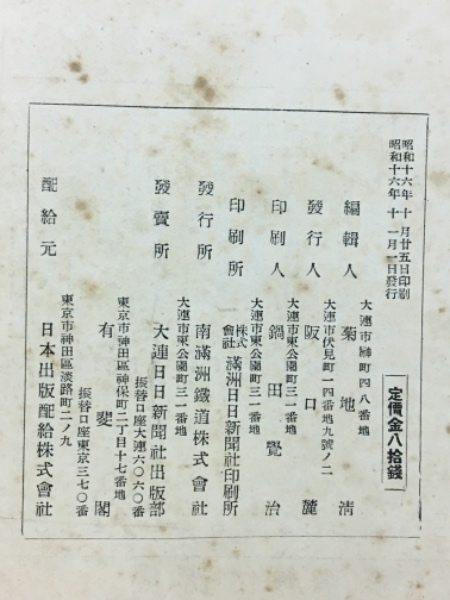 昭和十六年十月廿五日印刷
昭和十六年十一月一日發行
定價金八拾錢
大連市榊町四八番地
編輯人 菊地清
大連市伏見町一四番地九號ノ二
發行人 阪口麓
大連市東公園町三一番地
印刷人 鍋田覺治
大連市東公園町三一番地
印刷所 株式會社 滿洲日日新聞社印刷所
發行所 南滿洲鐵道株式會社
大連市東公園町三一番地
發賣所 大連日日新聞社出版部
振替口座大連六〇六〇番
東京市神田區神保町二丁目十七番地
有斐閣
振替口座東京三七〇番
東京市神田區淡路町二ノ九
配給元 日本出版配給株式會社